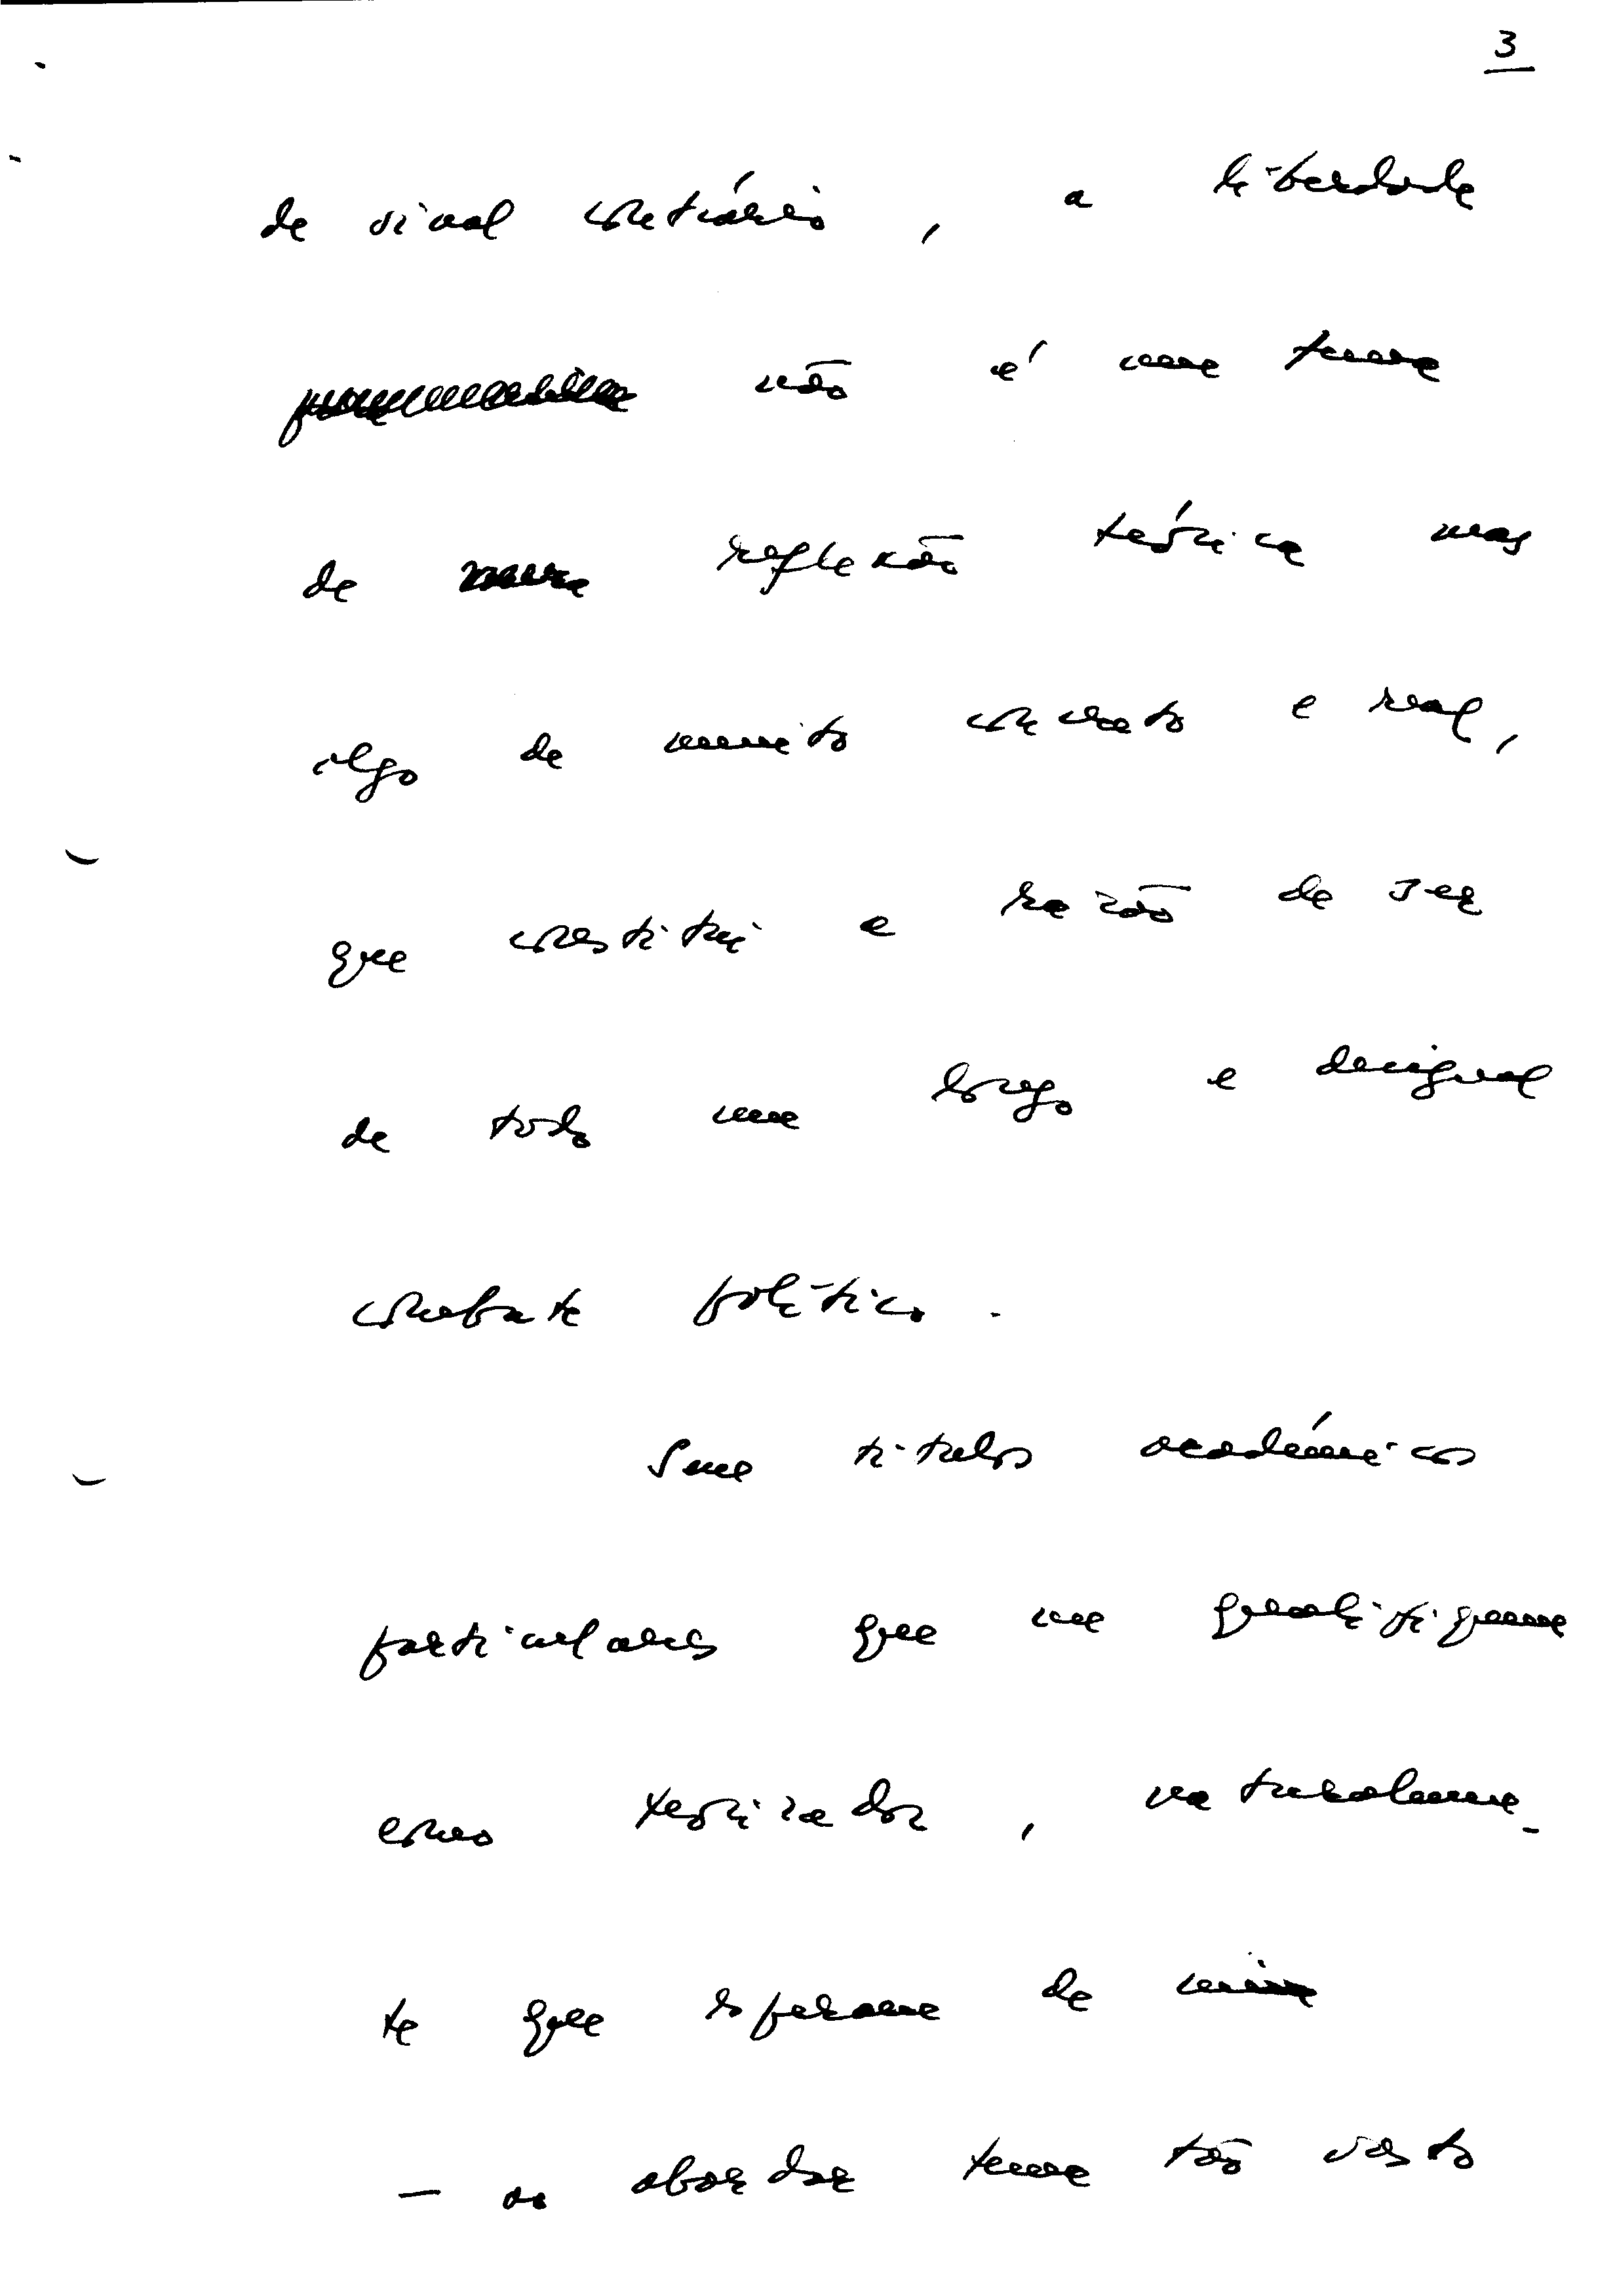 3
de sinal contrário, a liberdade
não é um tema
de mera reflexão teórica mas
algo de muito concreto e real,
que constitui a razão de ser
de todo um longo e desigual
combate político.
Sem títulos académicos
particulares que me qualifiquem
como teorizador, naturalmen-
te que esperam de mim
— ao abordar tema tão vasto